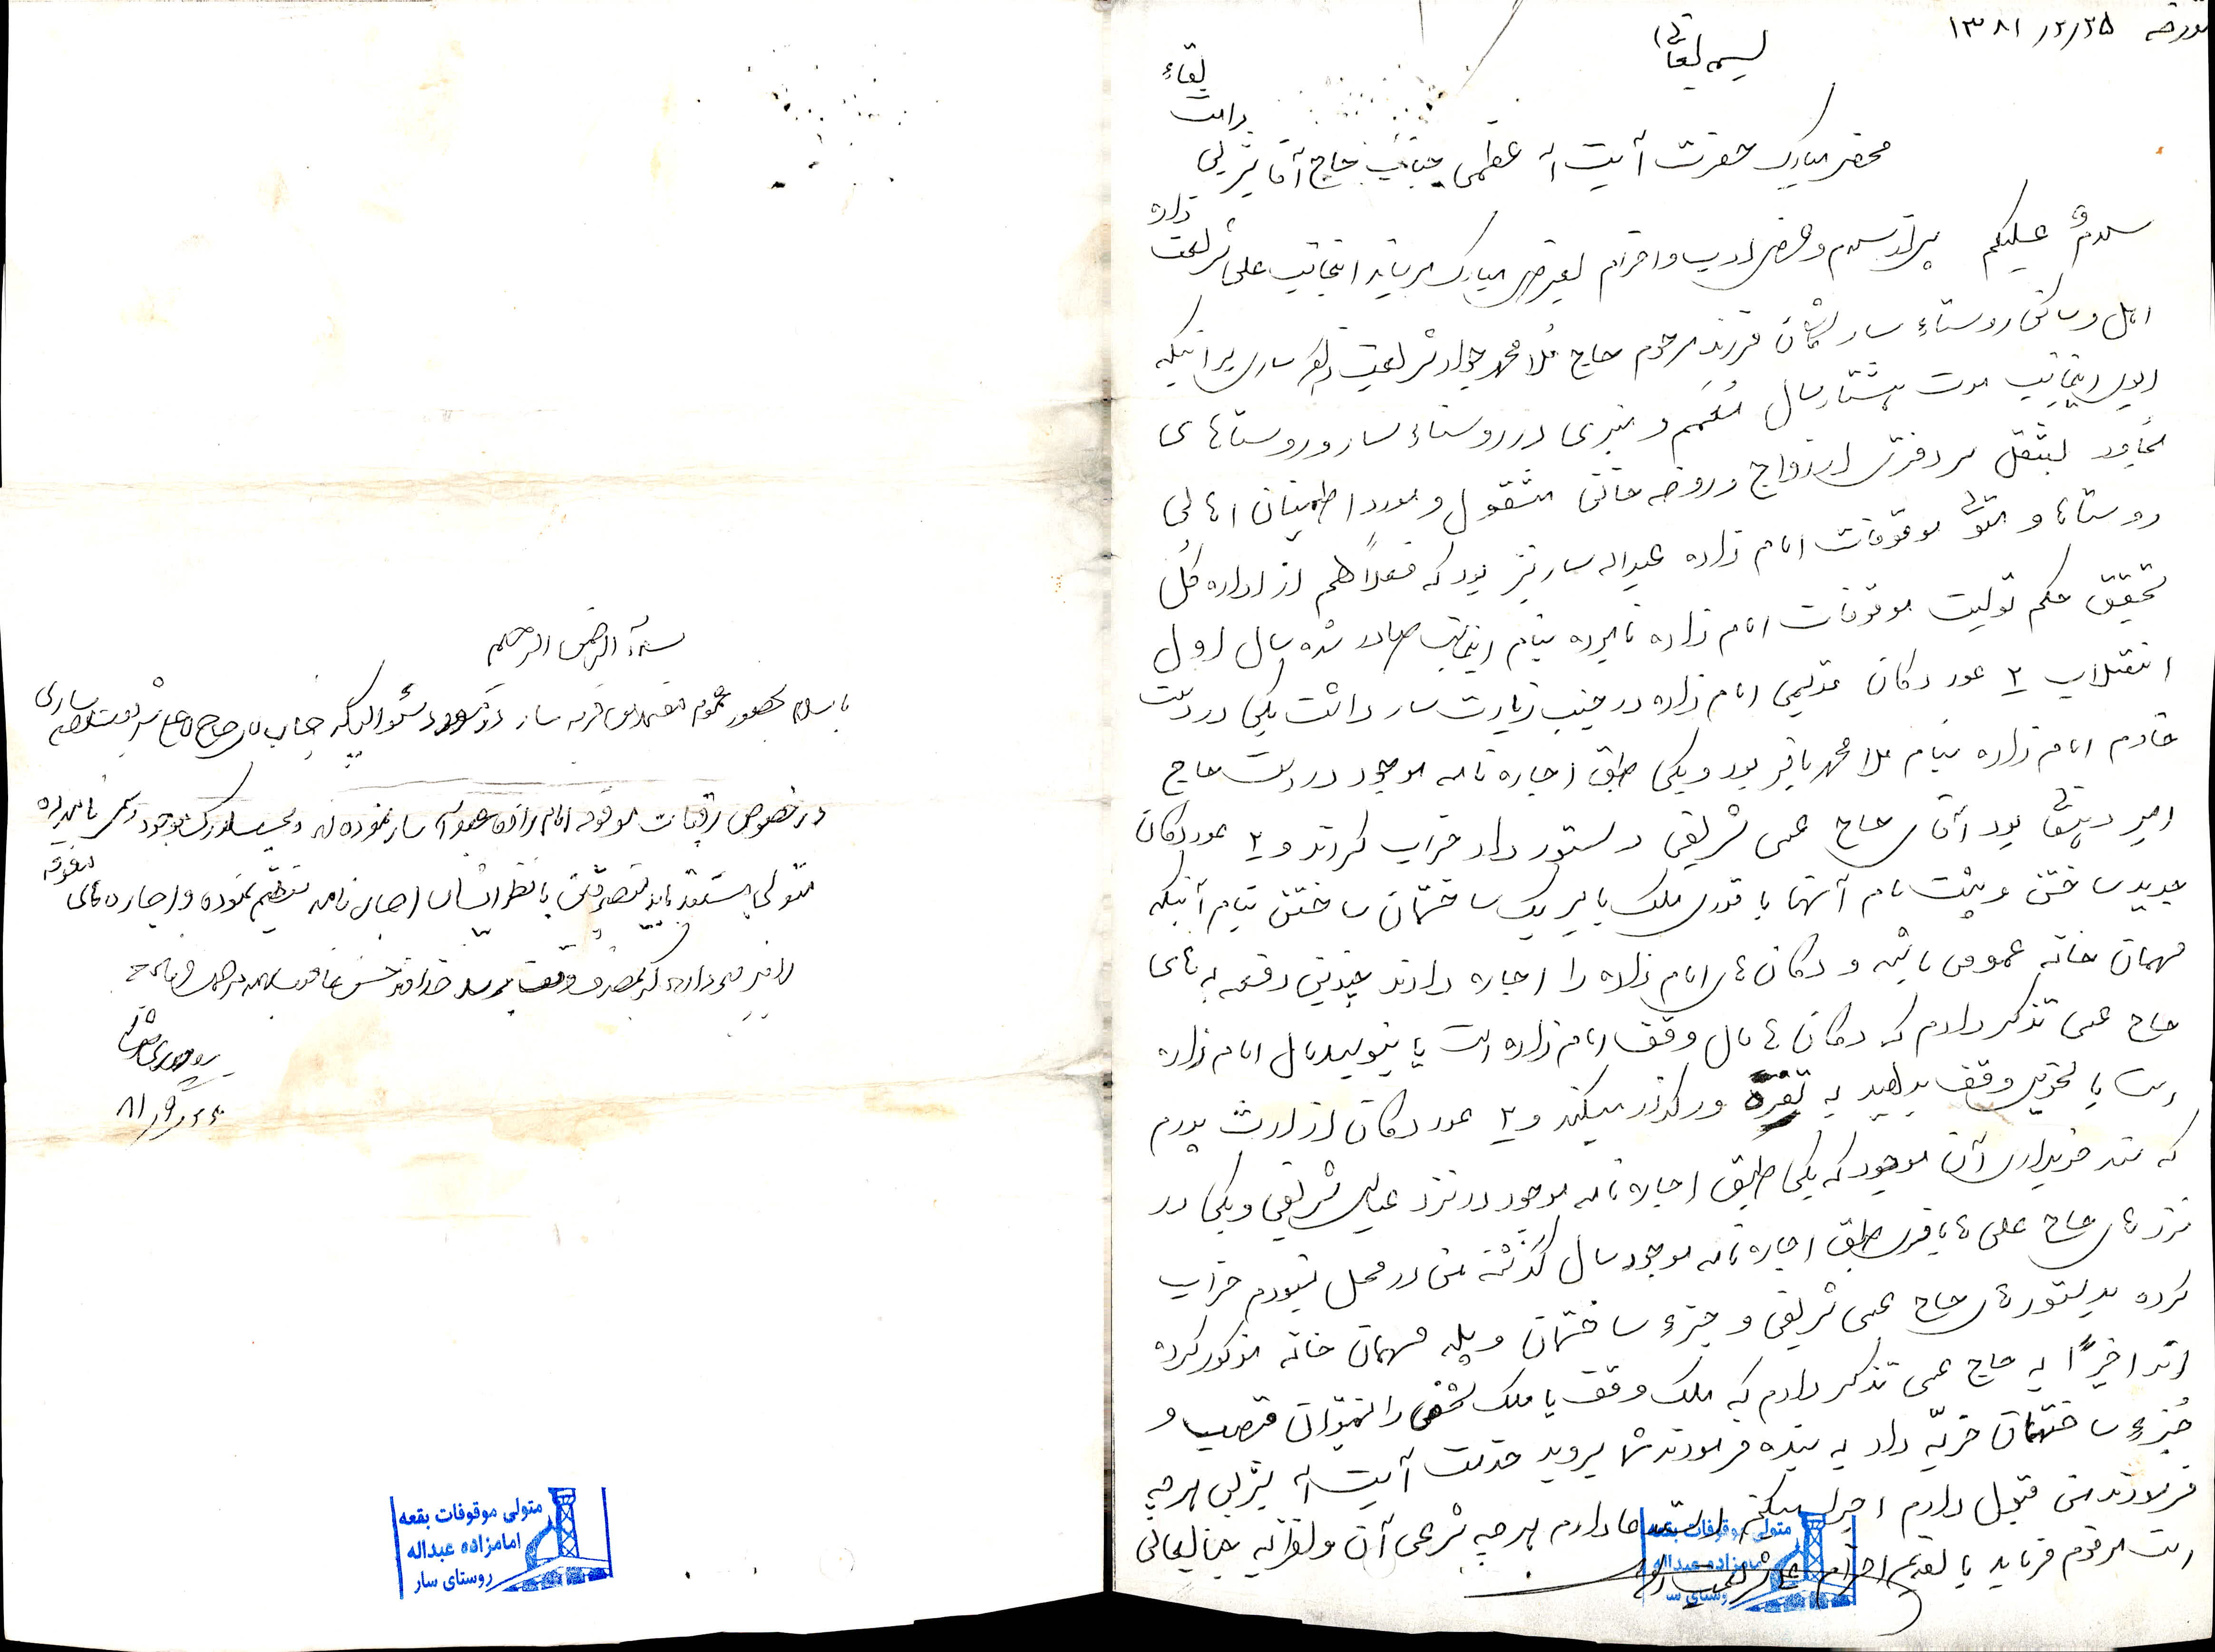 مورخه ۱۳۸۱/۲/۲۵
بسمه تعالی
محضر مبارک حضرت آیت اله عظمی جناب حاج آقا یثربی دامت بقاء
سلامٌ علیکم پس از سلام و عرض ادب و احترام بعرض مبارک میرساند اینجانب علی شریعت زاده
اهل و ساکن روستای سار کاشان فرزند مرحوم حاج ملا محمد جواد شریعت زاده ساری برا اینکه
ابوی اینجانب مدت هشتاد سال معمم و منبری در روستاء سار و روستاهای
مجاور بشغل سر دفتری ازدواج و روضه خوانی مشغول و مورد اطمینان اهالی
روستاها و متولی موقوفات امام زاده عبداله سار نیز بود که فعلاً هم از اداره کل
تحقیق حکم تولیت موقوفات امام زاده نامبرده بنام اینجانب صادر شده سال اول
انقلاب ۲ عدد دکان قدیمی امام زاده در جنب زیارت سار داشت یکی در دست
خادم امام زاده بنام ملا محمد باقر بود و یکی طبق اجاره نامه موجود در دست حاج
امیر دهقانی بود آقای حاج عمی شریفی دستور داد خراب کردند و ۲ عدد دکان
جدید ساختن و پشت بام آنها با قدری ملک بایر یک ساختمان ساختن بنام آنیکه
مهمان خانه عمومی باشه و دکان های امام زاده را اجاره دادند چندین دفعه به آقای
حاج عمی تذکر دادم که دکان ها مال وقف امام زاده است یا بنویسید مال امام زاده
است یا تحویل وقف بدهید به نفره ور گذار میکند و ۲ عدد دکان از ارث پدرم
که سند خریداری آن موجود که یکی طبق اجاره نامه موجود در نزد عباس شریفی و یکی در
نزد آقای حاج علی آقا باقری طبق اجاره نامه موجود سال گذشته من در محل نبودم خراب
کرده بدستور آقای حاج عمی شریفی و جزء ساختمان و پله مهمان خانه مذکور کرده
اند اخیراً به حاج عمی تذکر دادم که ملک وقف یا ملک شخصی را نمیتوان غصب و
جزءِ ساختمان خریّه داد به بنده فرمودند شما بروید خدمت آیت اله یثربی هر چه
فرمودند من قبول دارم اجرا میکنم استدعا دارم هر چه شرعی آن و نظریه جنابعالی
است مرقوم فرماید با تقدیم احترام علی شریعت زاده
متولی موقوفات بقعه
امامزاده عبداله
روستای سار
بسم الله الرحمن الرحیم
با سلام بحضور عموم قریه سار جناب آقای حاج شریعت زاده ساری
در خصوص رقبات موقوفه امام زاده عبداله سار نموده اند موجود نامبرده
متولی هستند باید با نظر ایشان اجاره نامه تنظیم نموده و اجاره های معوقه
را نیز که بمصرف وقف برسد
۸۱/۹/۲۴
متولی موقوفات بقعه
امامزاده عبداله
روستای سار